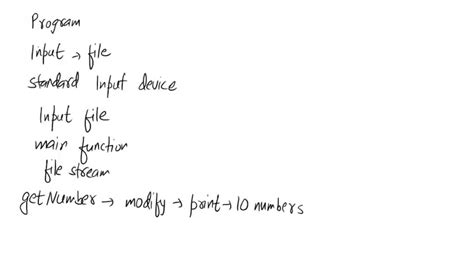 Program
Input → file
standard Input device
Input file
main function
file stream
getNumber → modify → print → 10 numbers